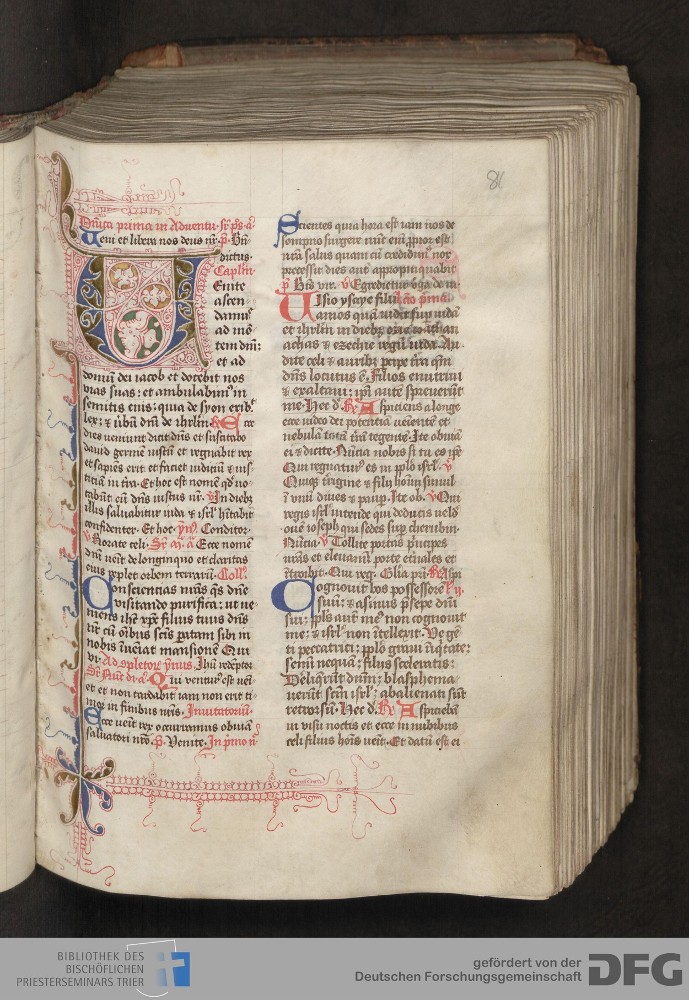 81
Dnica prima in Aduentu
Veni et libera nos deus nr
dictus
Caplm
Enite
ascen
damus
ad mo
tem dni
et ad
domu dei iacob et docebit nos
vias suas : et ambulabim in
semitis eius : quia de syon exib
lex : et ubu dni de ihrlm
dies veniunt dicit dns et suscitabo
dauid germe iustu et regnabit rex
et sapies erit et faciet iudiciu et ius
ticia in tra. Et hoc est nome qd uo
cabut eu dns iustus nr. In dieb
illis saluabitur iuda et isrl hitabit
confidenter. Et hoc. Conditor
Rorate celi. Ecce nome
dni ueit de longinquo et claritas
eius replet orbem terraru. Coll
Consciencias nras qs dne
visitando purifica : ut ve
niens ihc xpc filius tuus dns
nr cu oibus scis patam sibi in
nobis inueiat mansione Qui
Ad . Ihu redeptor
Qui ventur est uei
et et non tardabit iam non erit ti
mor in finibus nris. Inuitatoriu
Ecce veit rex occurramus obuia
saluatori nro. Venite. In pmo
Scientes quia hora est iam nos de
sompno surgere nuc eni ppior est
nra salus quam cu credidim nox
precessit dies aut appropinquabit
Egredietur uga de
Isio ysaye filii
amos qua vidit sup iuda
et ihrlm in dieb ozie ioathan
achas et ezechie regu iuda. Au
dite celi et aurib pcipe tra qm
dns locutus e. Filios enutriui
et exaltaui : ipi aute spreuerut
me. Hec d. Aspiciens a longe
ecce video dei potencia veiente et
nebula tota tra tegente. Ite obuia
ei et dicite. Nucia nobis si tu es ipe
Qui regnatur es in pplo isrl.
Quiq trigine et filij hoim simul
i vnu diues et paup. Ite ob. Qui
regis isrl intende qui deducis uelud
oue ioseph qui sedes sup cherubin
Nucia. Tollite portas pncipes
vras et eleuami porte etnales et
itroibit. Qui reg. Glia pri. Aspi
Cognouit bos possessore
suu : et asinus psepe dni
sui : isrl aut me non cognouit
me : et isrl non itellexit. Ve ge
ti peccatrici : pplo graui iiqtate :
semi nequa : filijs sceleratis :
Deliqrut dnm : blasphema
uerut scm isrl : abalienati sut
retrorsu. Hec d. Aspiciebam
in visu noctis et ecce in nubibus
celi filius hois ueit. Et datu est ei
BIBLIOTHEK DES
BISCHÖFLICHEN
PRIESTERSEMINARS TRIER
gefördert von der
Deutschen Forschungsgemeinschaft
DFG